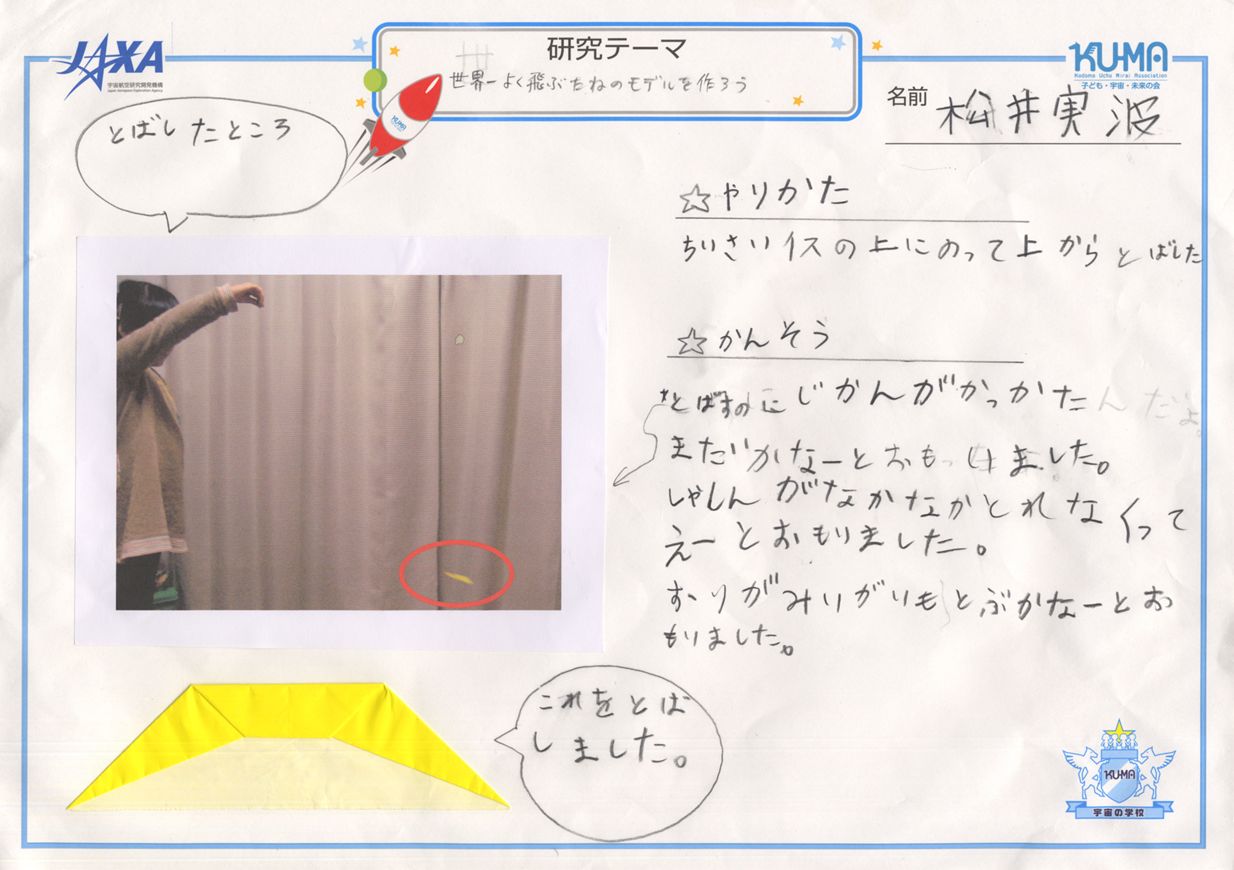 JAXA
宇宙航空研究開発機構
Japan Aerospace Exploration Agency
研究テーマ
世界一よく飛ぶたねのモデルを作ろう
KUMA
KU-MA
Kodomo Uchu Mirai Association
子ども・宇宙・未来の会
名前 松井実波
とばしたところ
☆やりかた
ちいさいイスの上にのって上からとばした
☆かんそう
とばすのにじかんがかっかたんだよ。
まだかなーとおもっ ました。
しゃしんがなかなかとれなくって
えーとおもりました。
おりがみりがりもとぶかなーとお
もりました。
これをとば
しました。
KU-MA
宇宙の学校